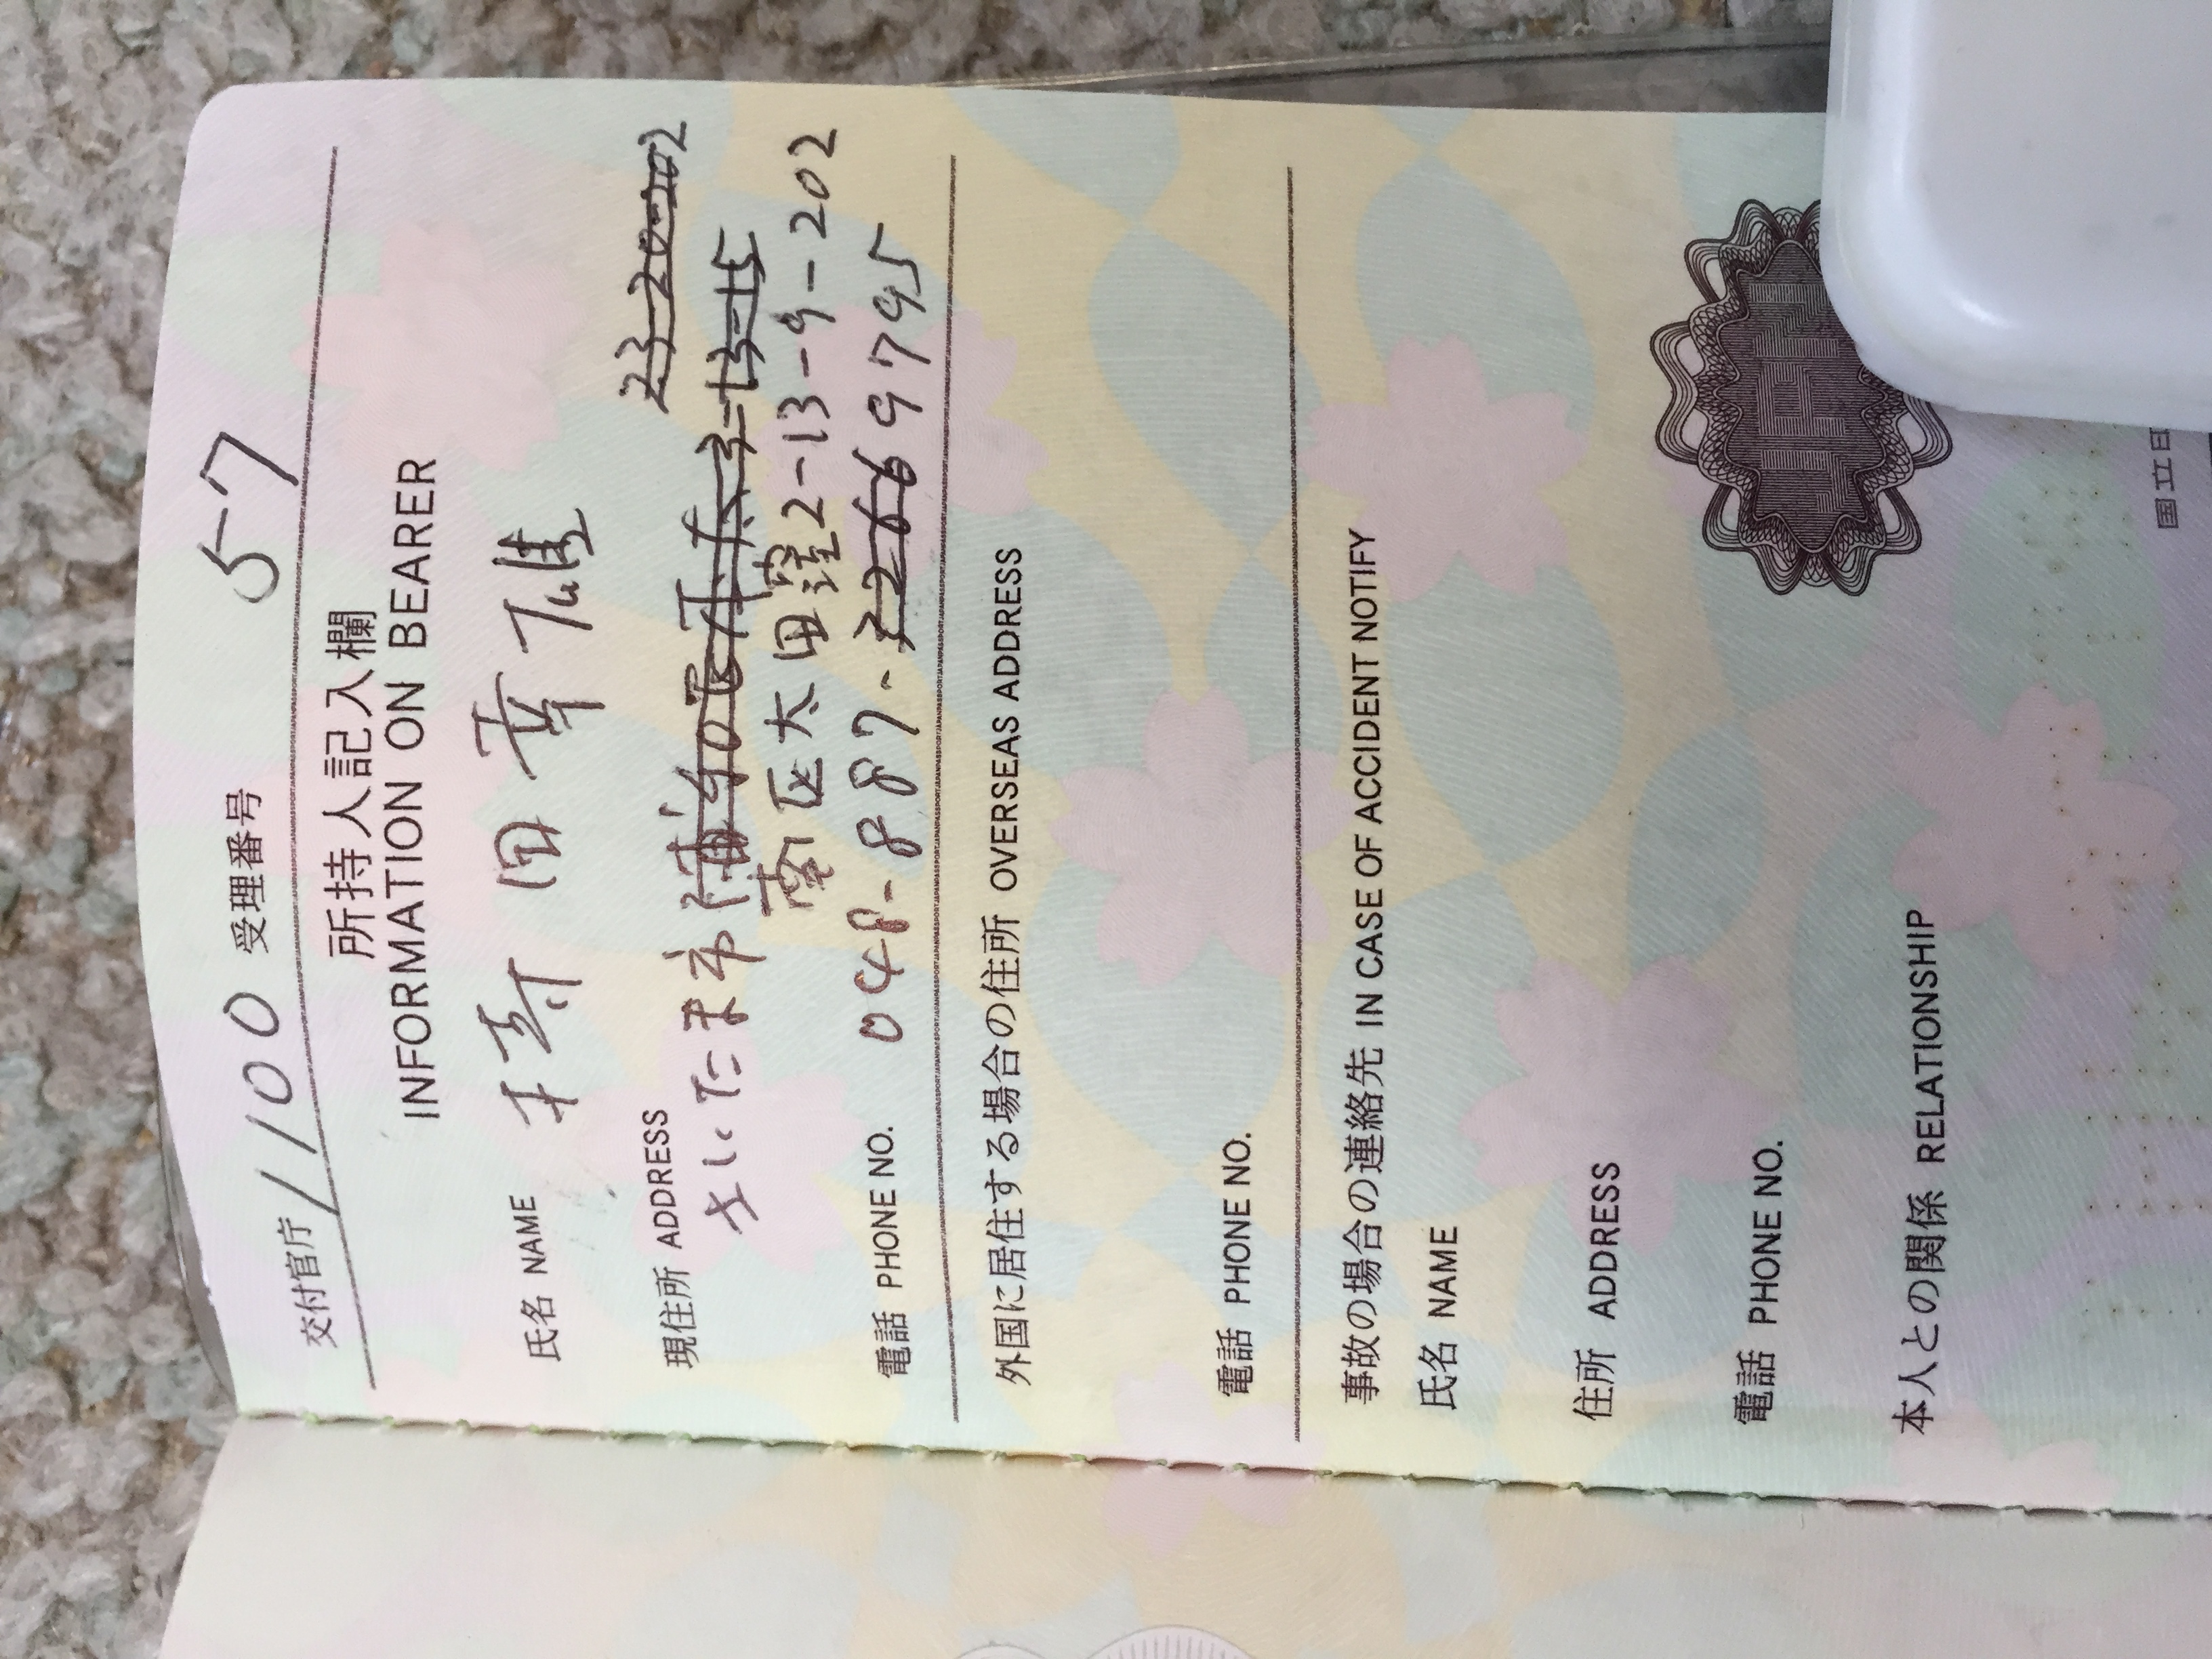 交付官庁 1100 受理番号 57
所持人記入欄
INFORMATION ON BEARER
氏名 NAME 持田幸雄
23-20-202
現住所 ADDRESS
さいたま市浦和区本太3-13-15
南区太田窪2-13-9-202
電話 PHONE NO. 048-887-3266 9795
外国に居住する場合の住所 OVERSEAS ADDRESS
電話 PHONE NO.
事故の場合の連絡先 IN CASE OF ACCIDENT NOTIFY
氏名 NAME
住所 ADDRESS
電話 PHONE NO.
本人との関係 RELATIONSHIP
JPN
国立印